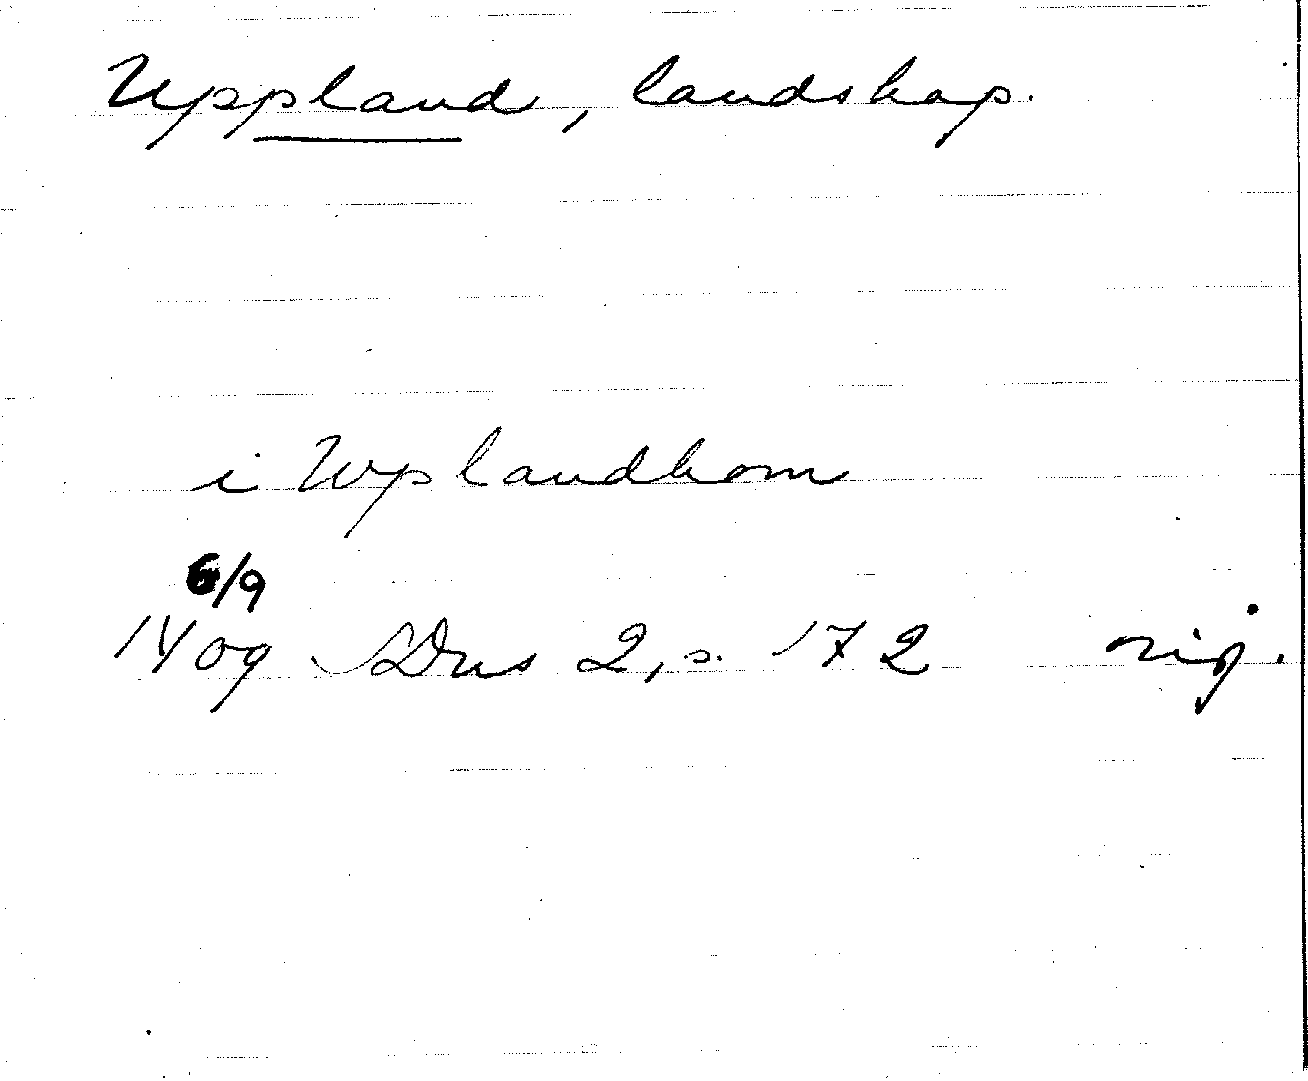 Uppland, landskap.
i Wplandhom
6/9
1409 SDns 2, s. 172 orig.